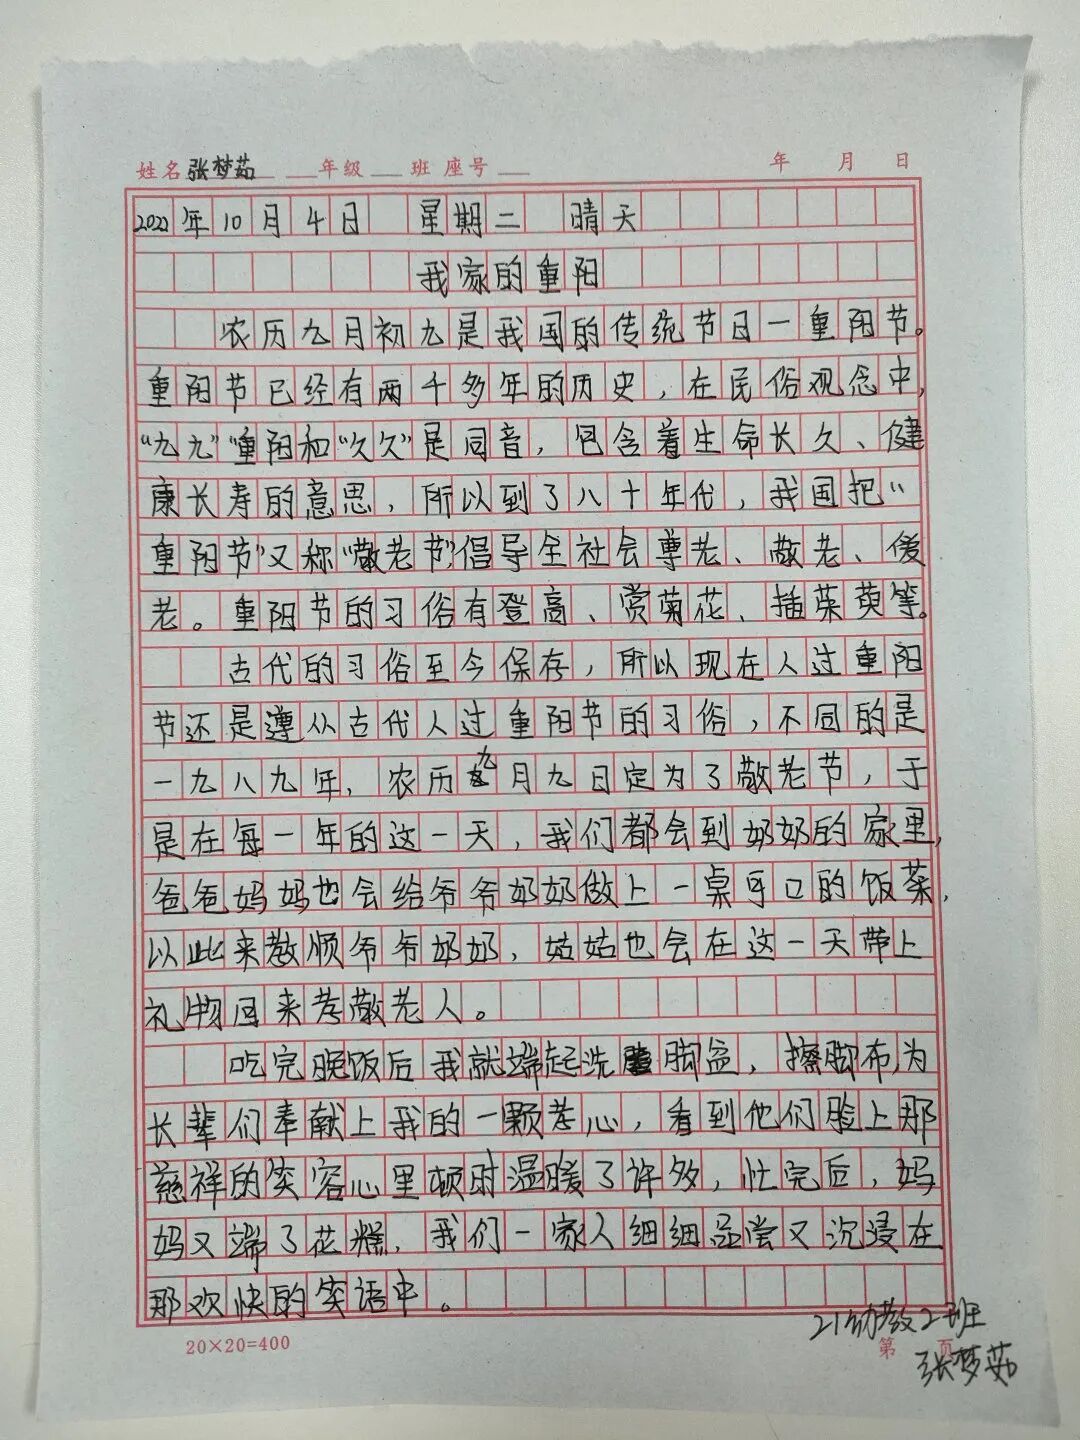 姓名张梦茹 年级 班 座号 年 月 日
2022年10月4日 星期二 晴天
我家的重阳
农历九月初九是我国的传统节日一重阳节。
重阳节已经有两千多年的历史，在民俗观念中，
“九九”“重阳和“久久”是同音，包含着生命长久、健
康长寿的意思，所以到了八十年代，我国把“
重阳节”又称“敬老节”，倡导全社会尊老、敬老、爱
老。重阳节的习俗有登高、赏菊花、插茱萸等。
古代的习俗至今保存，所以现在人过重阳
节还是遵从古代人过重阳节的习俗，不同的是
一九八九年，农历九月九日定为了敬老节，于
是在每一年的这一天，我们都会到奶奶的家里，
爸爸妈妈也会给爷爷奶奶做上一桌可口的饭菜，
以此来教顺爷爷奶奶，姑姑也会在这一天带上
礼物回来孝敬老人。
吃完晚饭后我就端起洗脚盆，擦脚布，为
长辈们奉献上我的一颗孝心，看到他们脸上那
慈祥的笑容心里顿时温暖了许多，忙完后，妈
妈又端了花糕，我们一家人细细品尝又沉浸在
那欢快的笑语中。
20×20=400
21幼教2班
第 页
张梦茹